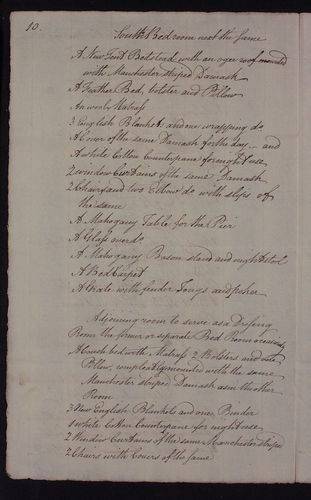 10.
South Bed room next the same
A New Tent Bedstead with an ogee roof mounted
with Manchester striped Damask
A Feather Bed, bolster and Pillow
An wool Matrass
3 English Blankets and one wrapping do
A Cover of the same Damask for the day, and
A white Cotton Counterpane for night use
2 window Curtains of the same Damask
2 Chairs and two Elbow do with slips of
the same
A Mahogany Table for the Pier
A Glass over do
A Mahogany Bason stand and night stool
A Bed Carpet
A Grate with fender Tongs and poker
Adjoining room to serve as a Dressing
Room the former or separate Bed Room occasionally
A Couch bed with Matrass 2 Bolsters and one
Pillow, compleatly mounted with the same
Manchester striped Damask as in the other
Room
3 New English Blankets and one Under
1 white Cotton Counterpane for night use
2 Window Curtains of the same Manchester stripe
2 Chairs with Covers of the same